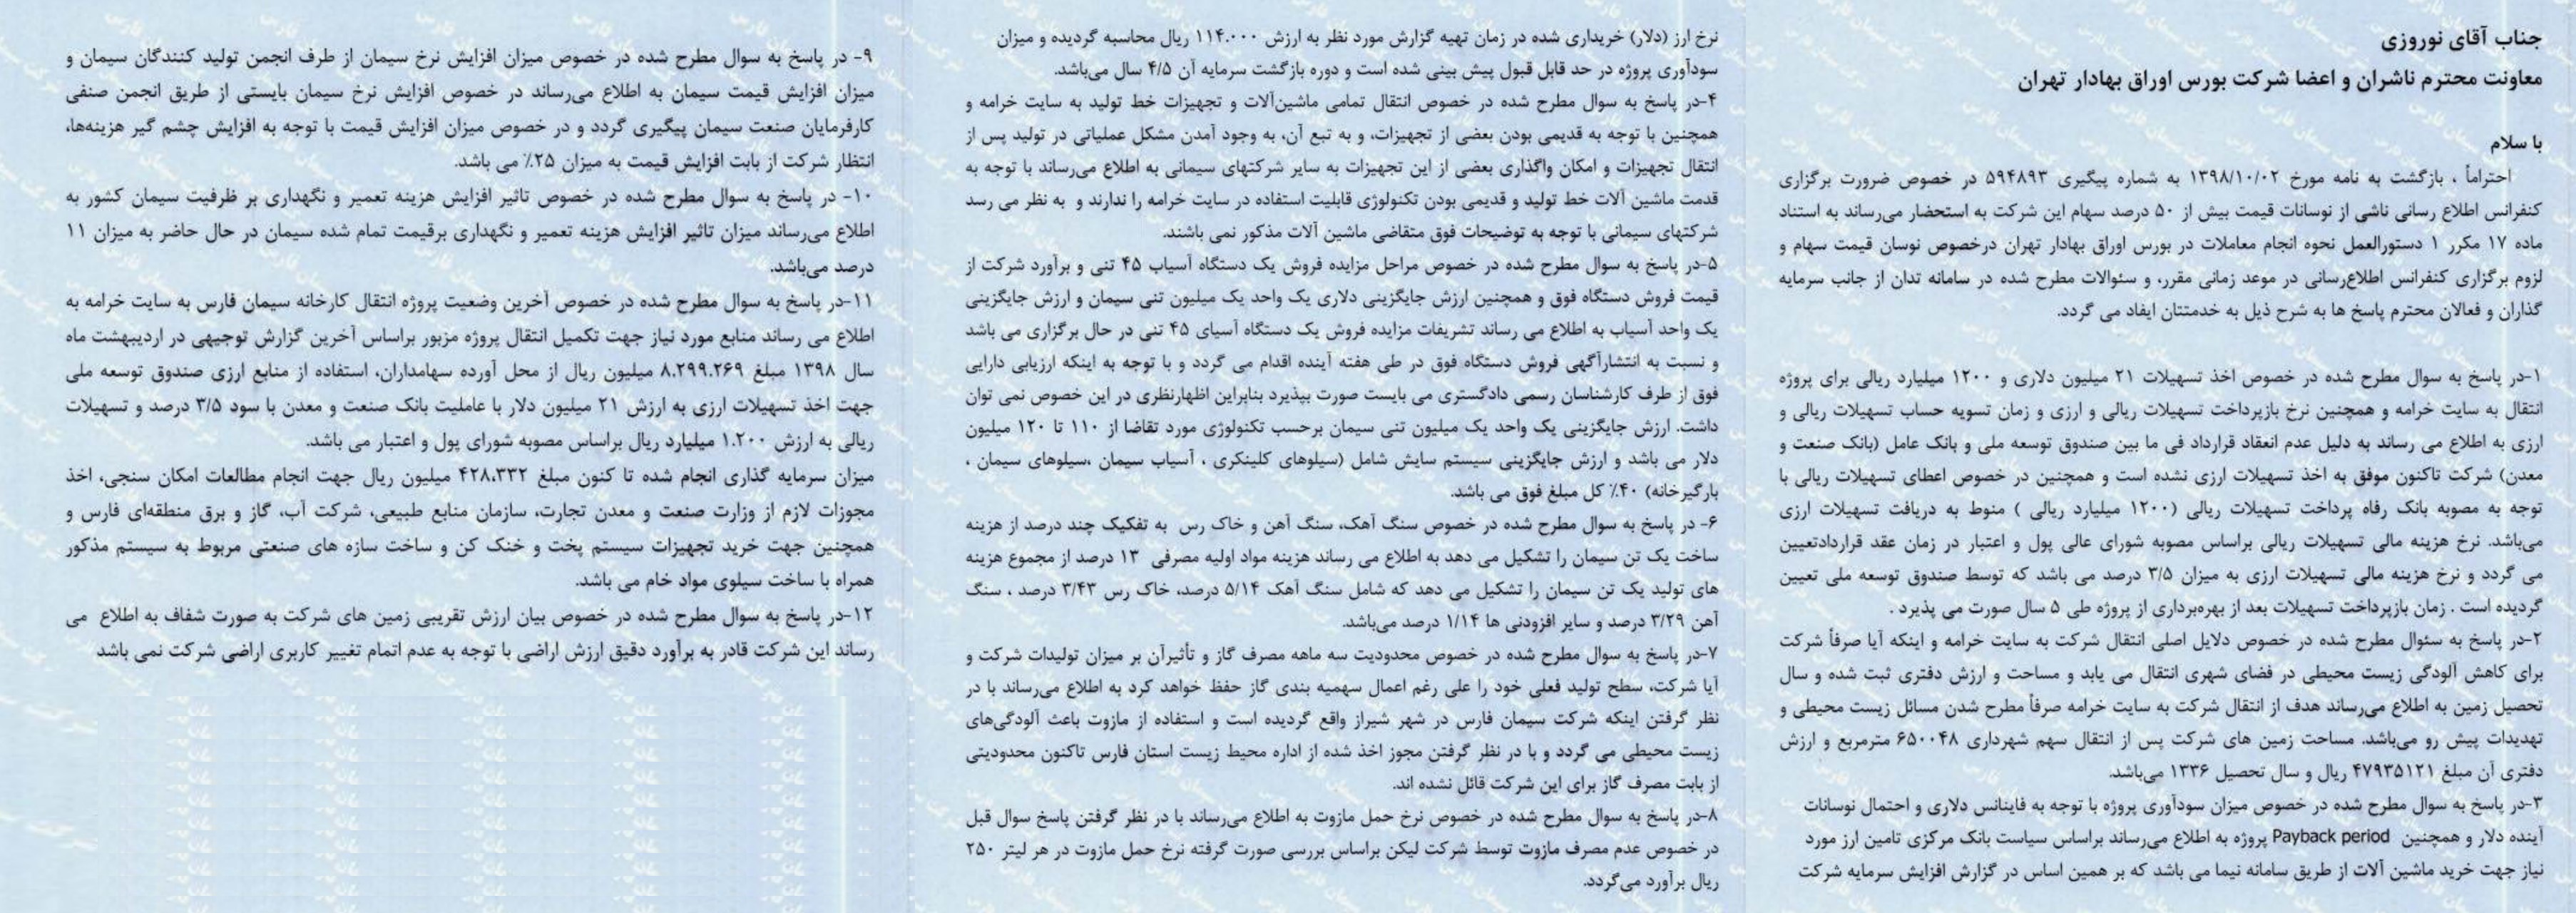 جناب آقای نوروزی
معاونت محترم ناشران و اعضا شرکت بورس اوراق بهادار تهران
با سلام
احتراماً ، بازگشت به نامه مورخ ۱۳۹۸/۱۰/۰۲ به شماره پیگیری ۵۹۴۸۹۳ در خصوص ضرورت برگزاری
کنفرانس اطلاع رسانی ناشی از نوسانات قیمت بیش از ۵۰ درصد سهام این شرکت به استحضار می‌رساند به استناد
ماده ۱۷ مکرر ۱ دستورالعمل نحوه انجام معاملات در بورس اوراق بهادار تهران درخصوص نوسان قیمت سهام و
لزوم برگزاری کنفرانس اطلاع‌رسانی در موعد زمانی مقرر، و سئوالات مطرح شده در سامانه تدان از جانب سرمایه
گذاران و فعالان محترم پاسخ ها به شرح ذیل به خدمتتان ایفاد می گردد.
۱-در پاسخ به سوال مطرح شده در خصوص اخذ تسهیلات ۲۱ میلیون دلاری و ۱۲۰۰ میلیارد ریالی برای پروژه
انتقال به سایت خرامه و همچنین نرخ بازپرداخت تسهیلات ریالی و ارزی و زمان تسویه حساب تسهیلات ریالی و
ارزی به اطلاع می رساند به دلیل عدم انعقاد قرارداد فی ما بین صندوق توسعه ملی و بانک عامل (بانک صنعت و
معدن) شرکت تاکنون موفق به اخذ تسهیلات ارزی نشده است و همچنین در خصوص اعطای تسهیلات ریالی با
توجه به مصوبه بانک رفاه پرداخت تسهیلات ریالی (۱۲۰۰ میلیارد ریالی ) منوط به دریافت تسهیلات ارزی
می‌باشد. نرخ هزینه مالی تسهیلات ریالی براساس مصوبه شورای عالی پول و اعتبار در زمان عقد قراردادتعیین
می گردد و نرخ هزینه مالی تسهیلات ارزی به میزان ۳/۵ درصد می باشد که توسط صندوق توسعه ملی تعیین
گردیده است . زمان بازپرداخت تسهیلات بعد از بهره‌برداری از پروژه طی ۵ سال صورت می پذیرد .
۲-در پاسخ به سئوال مطرح شده در خصوص دلایل اصلی انتقال شرکت به سایت خرامه و اینکه آیا صرفاً شرکت
برای کاهش آلودگی زیست محیطی در فضای شهری انتقال می یابد و مساحت و ارزش دفتری ثبت شده و سال
تحصیل زمین به اطلاع می‌رساند هدف از انتقال شرکت به سایت خرامه صرفاً مطرح شدن مسائل زیست محیطی و
تهدیدات پیش رو می‌باشد. مساحت زمین های شرکت پس از انتقال سهم شهرداری ۶۵۰۰۴۸ مترمربع و ارزش
دفتری آن مبلغ ۴۷۹۳۵۱۲۱ ریال و سال تحصیل ۱۳۳۶ می‌باشد.
۳-در پاسخ به سوال مطرح شده در خصوص میزان سودآوری پروژه با توجه به فاینانس دلاری و احتمال نوسانات
آینده دلار و همچنین Payback period پروژه به اطلاع می‌رساند براساس سیاست بانک مرکزی تامین ارز مورد
نیاز جهت خرید ماشین آلات از طریق سامانه نیما می باشد که بر همین اساس در گزارش افزایش سرمایه شرکت
نرخ ارز (دلار) خریداری شده در زمان تهیه گزارش مورد نظر به ارزش ۱۱۴.۰۰۰ ریال محاسبه گردیده و میزان
سودآوری پروژه در حد قابل قبول پیش بینی شده است و دوره بازگشت سرمایه آن ۴/۵ سال می‌باشد.
۴-در پاسخ به سوال مطرح شده در خصوص انتقال تمامی ماشین‌آلات و تجهیزات خط تولید به سایت خرامه و
همچنین با توجه به قدیمی بودن بعضی از تجهیزات، و به تبع آن، به وجود آمدن مشکل عملیاتی در تولید پس از
انتقال تجهیزات و امکان واگذاری بعضی از این تجهیزات به سایر شرکتهای سیمانی به اطلاع می‌رساند با توجه به
قدمت ماشین آلات خط تولید و قدیمی بودن تکنولوژی قابلیت استفاده در سایت خرامه را ندارند و به نظر می رسد
شرکتهای سیمانی با توجه به توضیحات فوق متقاضی ماشین آلات مذکور نمی باشند.
۵-در پاسخ به سوال مطرح شده در خصوص مراحل مزایده فروش یک دستگاه آسیاب ۴۵ تنی و برآورد شرکت از
قیمت فروش دستگاه فوق و همچنین ارزش جایگزینی دلاری یک واحد یک میلیون تنی سیمان و ارزش جایگزینی
یک واحد آسیاب به اطلاع می رساند تشریفات مزایده فروش یک دستگاه آسیای ۴۵ تنی در حال برگزاری می باشد
و نسبت به انتشارآگهی فروش دستگاه فوق در طی هفته آینده اقدام می گردد و با توجه به اینکه ارزیابی دارایی
فوق از طرف کارشناسان رسمی دادگستری می بایست صورت بپذیرد بنابراین اظهارنظری در این خصوص نمی توان
داشت. ارزش جایگزینی یک واحد یک میلیون تنی سیمان برحسب تکنولوژی مورد تقاضا از ۱۱۰ تا ۱۲۰ میلیون
دلار می باشد و ارزش جایگزینی سیستم سایش شامل (سیلوهای کلینکری ، آسیاب سیمان ،سیلوهای سیمان ،
بارگیرخانه) ۴۰٪ کل مبلغ فوق می باشد.
۶- در پاسخ به سوال مطرح شده در خصوص سنگ آهک، سنگ آهن و خاک رس به تفکیک چند درصد از هزینه
ساخت یک تن سیمان را تشکیل می دهد به اطلاع می رساند هزینه مواد اولیه مصرفی ۱۳ درصد از مجموع هزینه
های تولید یک تن سیمان را تشکیل می دهد که شامل سنگ آهک ۵/۱۴ درصد، خاک رس ۳/۴۳ درصد ، سنگ
آهن ۳/۲۹ درصد و سایر افزودنی ها ۱/۱۴ درصد می‌باشد.
۷-در پاسخ به سوال مطرح شده در خصوص محدودیت سه ماهه مصرف گاز و تأثیرآن بر میزان تولیدات شرکت و
آیا شرکت، سطح تولید فعلی خود را علی رغم اعمال سهمیه بندی گاز حفظ خواهد کرد به اطلاع می‌رساند با در
نظر گرفتن اینکه شرکت سیمان فارس در شهر شیراز واقع گردیده است و استفاده از مازوت باعث آلودگی‌های
زیست محیطی می گردد و با در نظر گرفتن مجوز اخذ شده از اداره محیط زیست استان فارس تاکنون محدودیتی
از بابت مصرف گاز برای این شرکت قائل نشده اند.
۸-در پاسخ به سوال مطرح شده در خصوص نرخ حمل مازوت به اطلاع می‌رساند با در نظر گرفتن پاسخ سوال قبل
در خصوص عدم مصرف مازوت توسط شرکت لیکن براساس بررسی صورت گرفته نرخ حمل مازوت در هر لیتر ۲۵۰
ریال برآورد می‌گردد.
۹- در پاسخ به سوال مطرح شده در خصوص میزان افزایش نرخ سیمان از طرف انجمن تولید کنندگان سیمان و
میزان افزایش قیمت سیمان به اطلاع می‌رساند در خصوص افزایش نرخ سیمان بایستی از طریق انجمن صنفی
کارفرمایان صنعت سیمان پیگیری گردد و در خصوص میزان افزایش قیمت با توجه به افزایش چشم گیر هزینه‌ها،
انتظار شرکت از بابت افزایش قیمت به میزان ۲۵٪ می باشد.
۱۰- در پاسخ به سوال مطرح شده در خصوص تاثیر افزایش هزینه تعمیر و نگهداری بر ظرفیت سیمان کشور به
اطلاع می‌رساند میزان تاثیر افزایش هزینه تعمیر و نگهداری برقیمت تمام شده سیمان در حال حاضر به میزان ۱۱
درصد می‌باشد.
۱۱-در پاسخ به سوال مطرح شده در خصوص آخرین وضعیت پروژه انتقال کارخانه سیمان فارس به سایت خرامه به
اطلاع می رساند منابع مورد نیاز جهت تکمیل انتقال پروژه مزبور براساس آخرین گزارش توجیهی در اردیبهشت ماه
سال ۱۳۹۸ مبلغ ۸.۲۹۹.۲۶۹ میلیون ریال از محل آورده سهامداران، استفاده از منابع ارزی صندوق توسعه ملی
جهت اخذ تسهیلات ارزی به ارزش ۲۱ میلیون دلار با عاملیت بانک صنعت و معدن با سود ۳/۵ درصد و تسهیلات
ریالی به ارزش ۱.۲۰۰ میلیارد ریال براساس مصوبه شورای پول و اعتبار می باشد.
میزان سرمایه گذاری انجام شده تا کنون مبلغ ۴۲۸،۳۳۲ میلیون ریال جهت انجام مطالعات امکان سنجی، اخذ
مجوزات لازم از وزارت صنعت و معدن تجارت، سازمان منابع طبیعی، شرکت آب، گاز و برق منطقه‌ای فارس و
همچنین جهت خرید تجهیزات سیستم پخت و خنک کن و ساخت سازه های صنعتی مربوط به سیستم مذکور
همراه با ساخت سیلوی مواد خام می باشد.
۱۲-در پاسخ به سوال مطرح شده در خصوص بیان ارزش تقریبی زمین های شرکت به صورت شفاف به اطلاع می
رساند این شرکت قادر به برآورد دقیق ارزش اراضی با توجه به عدم اتمام تغییر کاربری اراضی شرکت نمی باشد